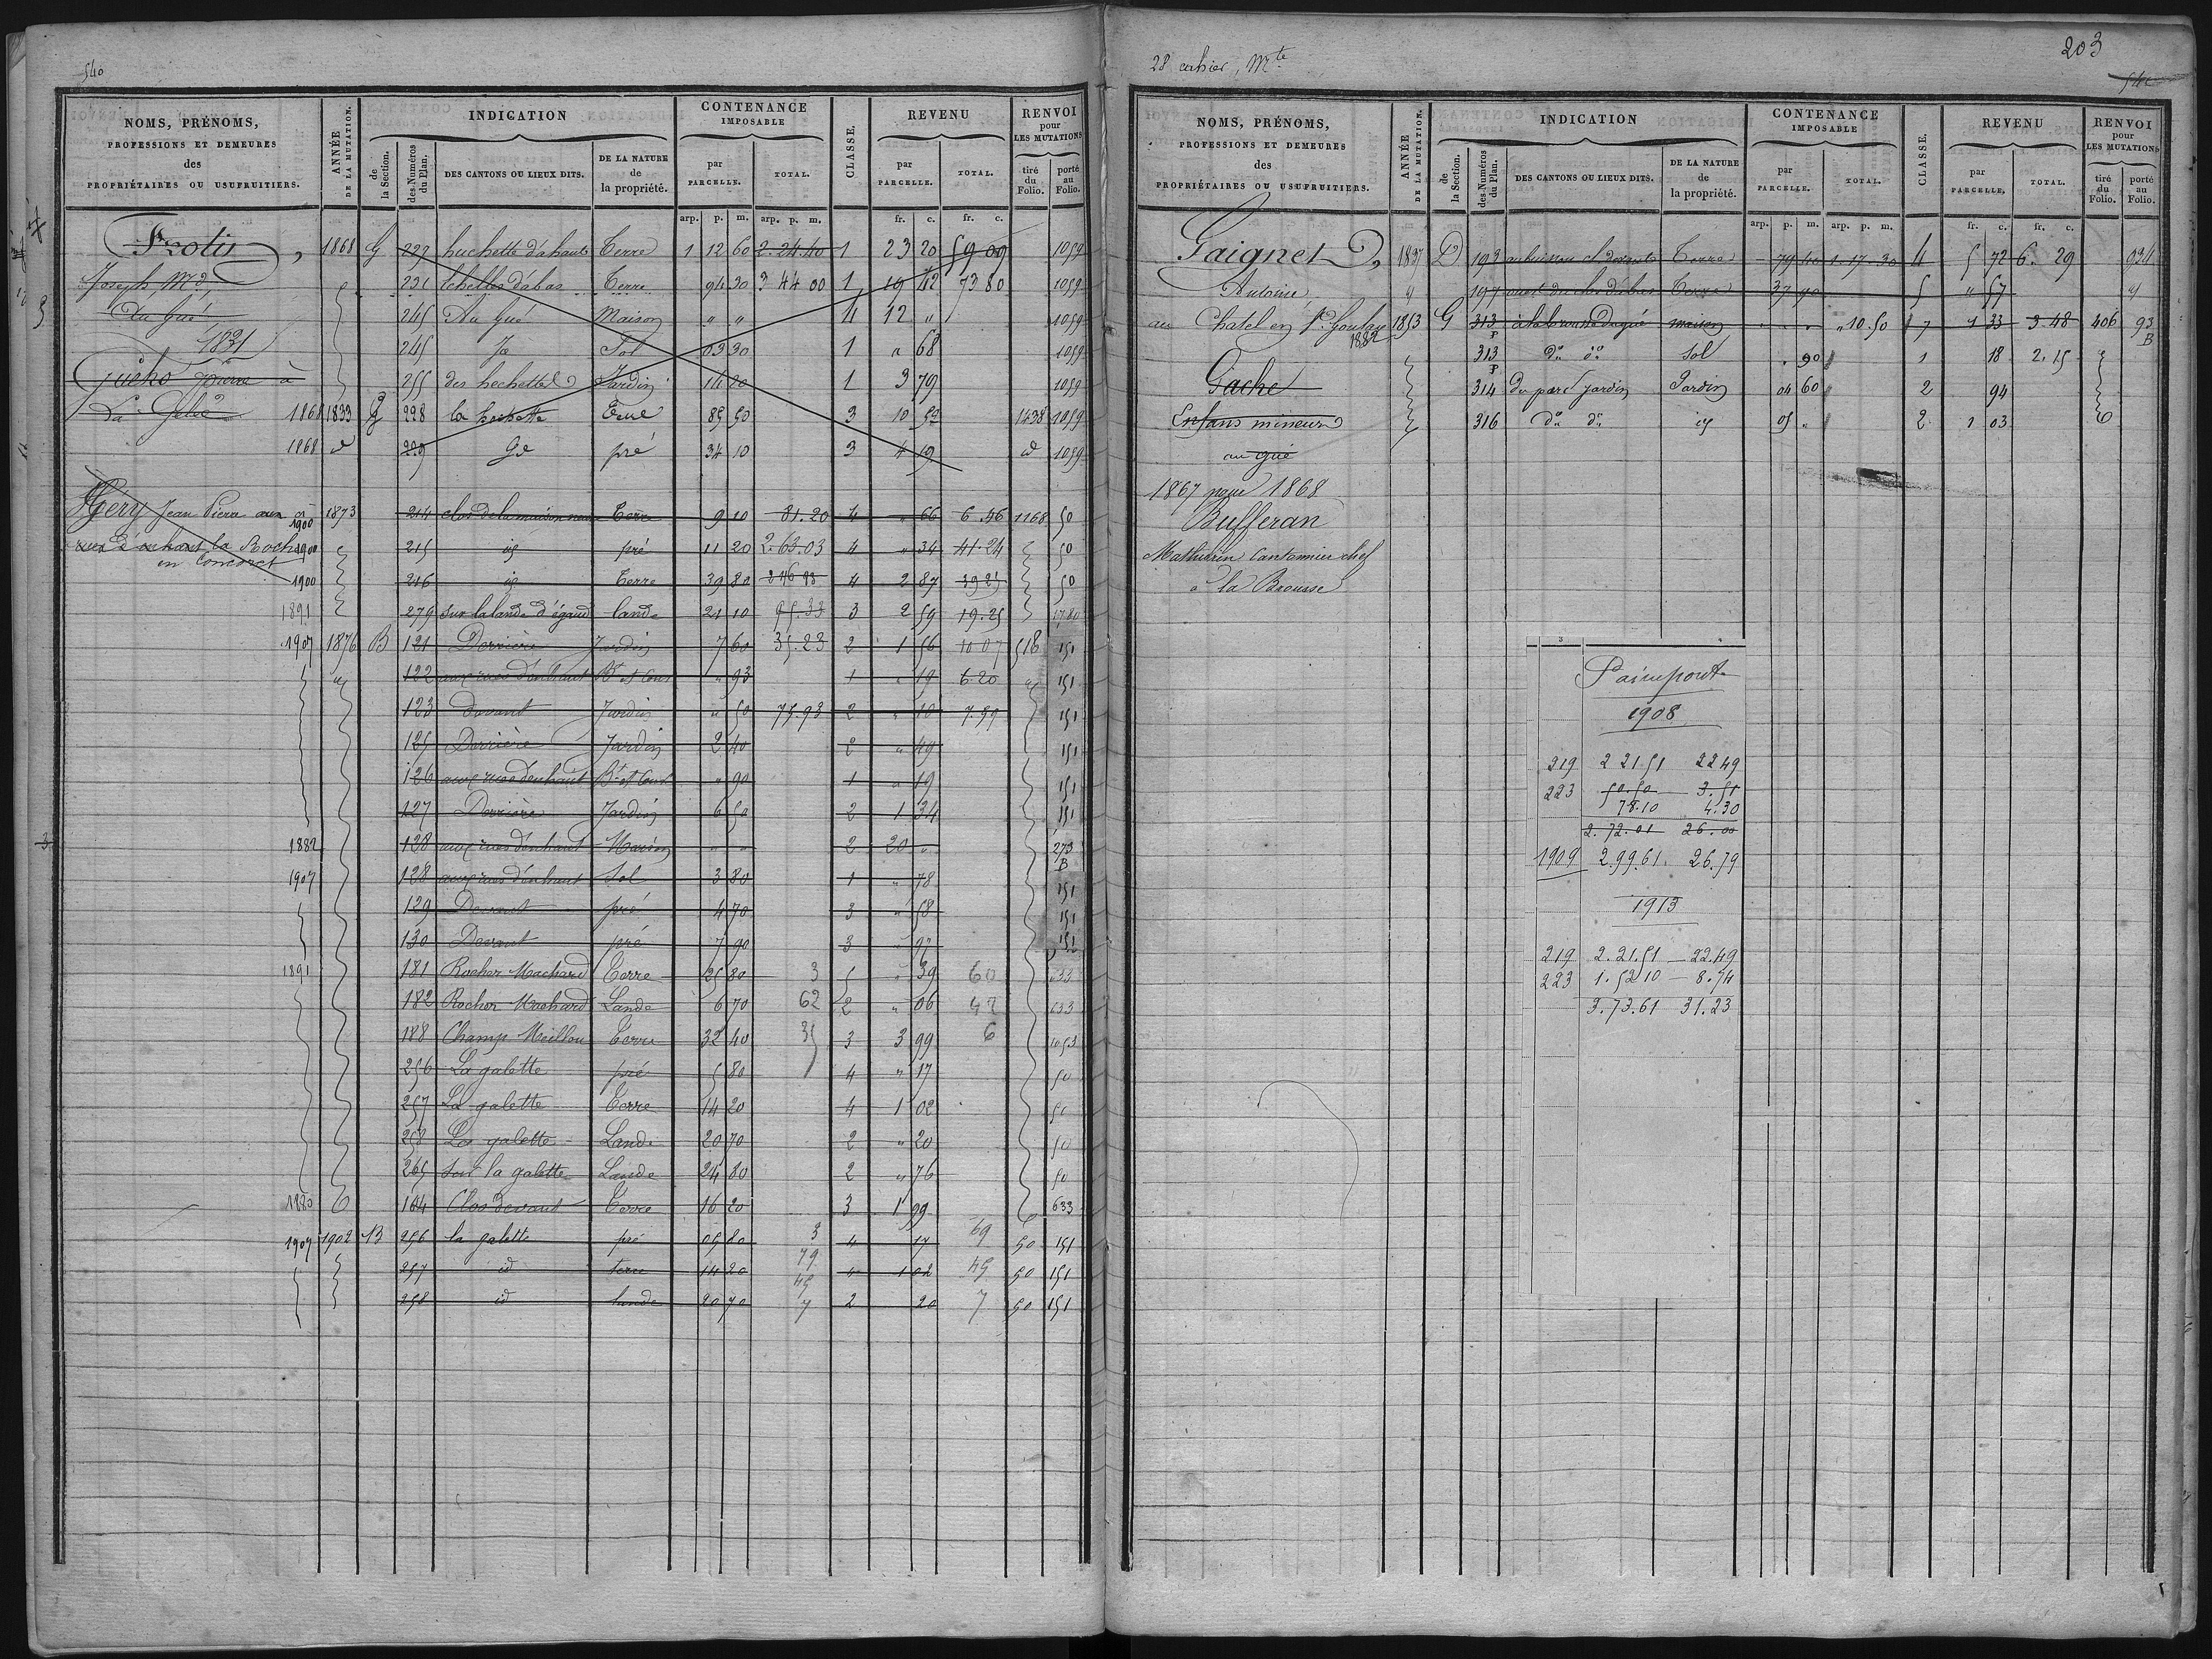 540
NOMS, PRÉNOMS, PROFESSIONS ET DEMEURES des PROPRIÉTAIRES OU USUFRUITIERS.
ANNÉE DE LA MUTATION.
INDICATION
de la Section.
des Numéros du Plan.
DES CANTONS OU LIEUX DITS.
DE LA NATURE de la propriété.
CONTENANCE IMPOSABLE
par PARCELLE.
TOTAL.
CLASSE.
REVENU
par PARCELLE.
TOTAL.
RENVOI pour LES MUTATIONS
tiré du Folio.
porté au Folio.
arp. p. m. arp. p. m. fr. c. fr. c.
Frotin, 1868 G 227 huchette d'ahaut Terre 1 12 60 2.24.40 1 23 20 59 00 1059
Joseph Md, 231 Echelles d'abas Terre 94 30 3 44 00 1 19 42 73 80 1059
du Gué 245 Au Gué Maison " " 4 12 " 1059
1831 245 Sol 03 30 1 " 68 1059
Pierre à 255 des hechettes Jardin 14 20 1 3 79 1059
1868 1833 G 228 la hechette Terre 85 50 3 10 52 1438 1059
1868 id 229 pré 34 10 3 4 19 id 1059
Gery Jean Pierre aux 1900 1873 214 clos de la maison neuve Terre 9 10 81.20 4 " 66 6.46 1168 50
rues d'enhaut la Roche 1900 215 id pré 11 20 2.63.03 4 " 34 41.24 50
en Concoret
1900 216 id Terre 39 80 4 2 87 39 25 50
1891 279 sur la lande d'égaud lande 21 10 95.33 3 2 59 19.25 1780
1907 1876 B 121 Derrière Jardin 7 60 35.23 2 1 56 10 07 518 151
122 aux rues d'enhaut Bt et Cour " 93 1 " 19 6 20 151
123 Devant Jardin " 50 75.93 2 " 10 7.59 151
125 Derrière Jardin 2 40 2 " 49 151
126 aux rues d'enhaut Bt et Cour " 90 1 " 19 151
127 Derrière Jardin 6 50 2 1 34 151
1882 128 aux rues d'enhaut Maison " " 2 20 " 273 B
1907 128 aux rues d'enhaut Sol 3 80 1 " 78 151
129 Devant pré 4 70 3 " 58 151
130 Devant pré 7 90 3 " 97 151
1891 181 Rocher Machard Terre 25 80 3 5 " 39 60 633
182 Rocher Machard Lande 6 70 62 2 " 06 42 633
188 Champ Meillou Terre 32 40 35 3 3 99 6 1053
256 La galette pré 5 80 4 " 17 50
257 La galette Terre 14 20 4 1 02 50
258 La galette Lande 20 70 2 " 20 50
265 Sur la galette Lande 24 80 2 " 76 50
1880 164 Clos devant Terre 16 20 3 1 99 633
1907 1902 B 256 la galette pré 05 80 3 4 17 69 50 151
257 id terre 14 20 79 4 1 02 45 50 151
258 id lande 20 70 45 2 20 7 50 151
28 cahier, Mte
203
NOMS, PRÉNOMS, PROFESSIONS ET DEMEURES des PROPRIÉTAIRES OU USUFRUITIERS.
ANNÉE DE LA MUTATION.
INDICATION
de la Section.
des Numéros du Plan.
DES CANTONS OU LIEUX DITS.
DE LA NATURE de la propriété.
CONTENANCE IMPOSABLE
par PARCELLE.
TOTAL.
CLASSE.
REVENU
par PARCELLE.
TOTAL.
RENVOI pour LES MUTATIONS
tiré du Folio.
porté au Folio.
arp. p. m. arp. p. m. fr. c. fr. c.
Gaignet, 1827 D 193 Terre 79 40 1.17.30 4 5 72 6.29 934
Antoine 197 Terre 37 90 5 " 57
au Chatel en 1853 G 313 p maison " " " 10.50 7 1 33 3 48 406 93 B
1882 313 p do do Sol " 90 1 18 2.15
Gache 314 du parc jardin Jardin 04 60 2 94
Enfans mineurs 316 do do id 05 " 2 1 03
au gué
1867 pour 1868
Bufferan
Mathurin Cantonnier chef
à la Brousse
Paimpont
1908
219 2 21 51 22 49
223 50.50 3.51
78.10 4.30
2.72.01 26.00
1909 2.99.61. 26.79
1913
219 2.21.51 22.49
223 1.52 10 8.74
3.73.61 31.23